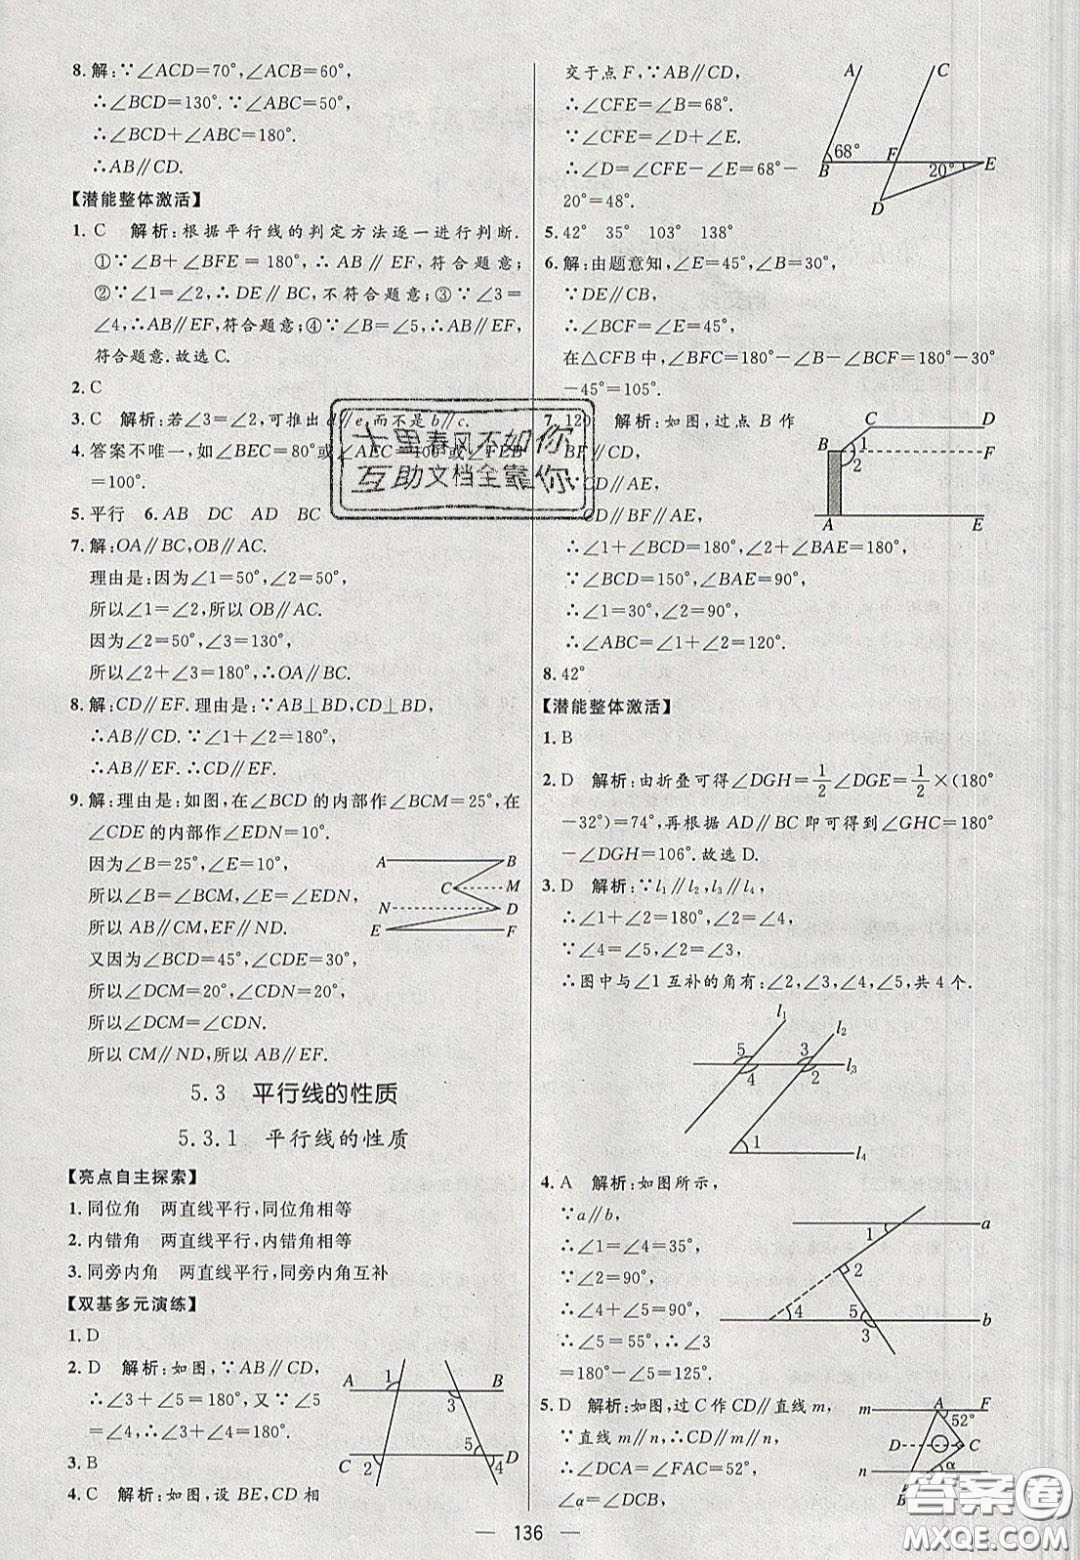 8. 解:∵∠ACD=70°,∠ACB=60°,
∴∠BCD=130°.∵∠ABC=50°,
∴∠BCD+∠ABC=180°.
∴AB∥CD.
【潜能整体激活】
1. C 解析:根据平行线的判定方法逐一进行判断.
①∵∠B+∠BFE=180°,∴AB∥EF,符合题意;
②∵∠1=∠2,∴DE∥BC,不符合题意;③∵∠3=
∠4,∴AB∥EF,符合题意;④∵∠B=∠5,∴AB∥EF,
符合题意.故选C.
2. C
3. C 解析:若∠3=∠2,可推出d∥e,而不是b∥c.
4. 答案不唯一,如∠BEC=80°或∠AEC=100°或∠FED
=100°.
5. 平行 6. AB DC AD BC
7. 解:OA∥BC,OB∥AC.
理由是:因为∠1=50°,∠2=50°,
所以∠1=∠2,所以OB∥AC.
因为∠2=50°,∠3=130°,
所以∠2+∠3=180°,∴OA∥BC.
8. 解:CD∥EF.理由是:∵AB⊥BD,CD⊥BD,
∴AB∥CD.∵∠1+∠2=180°,
∴AB∥EF.∴CD∥EF.
9. 解:理由是:如图,在∠BCD的内部作∠BCM=25°,在
∠CDE的内部作∠EDN=10°.
因为∠B=25°,∠E=10°,
所以∠B=∠BCM,∠E=∠EDN.
所以AB∥CM,EF∥ND.
又因为∠BCD=45°,∠CDE=30°,
所以∠DCM=20°,∠CDN=20°,
所以∠DCM=∠CDN.
所以CM∥ND,所以AB∥EF.
A B
C M
N D
E F
5.3 平行线的性质
5.3.1 平行线的性质
【亮点自主探索】
1. 同位角 两直线平行,同位角相等
2. 内错角 两直线平行,内错角相等
3. 同旁内角 两直线平行,同旁内角互补
【双基多元演练】
1. D
2. D 解析:如图,∵AB∥CD,
∴∠3+∠5=180°,又∵∠5
=∠4,∴∠3+∠4=180°.
3. B
4. C 解析:如图,设BE,CD相
A 1 B
3
5 D
C 2 4
交于点F,∵AB∥CD,
∴∠CFE=∠B=68°.
∵∠CFE=∠D+∠E.
∴∠D=∠CFE-∠E=68°-
20°=48°.
A C
68° F
B 20° E
D
5. 42° 35° 103° 138°
6. 解:由题意知,∠E=45°,∠B=30°,
∵DE∥CB,
∴∠BCF=∠E=45°,
在△CFB中,∠BFC=180°-∠B-∠BCF=180°-30°
-45°=105°.
7. 120 解析:如图,过点B作
BF∥CD,
∴CD∥BF∥AE,
∴∠1+∠BCD=180°,∠2+∠BAE=180°,
∵∠BCD=150°,∠BAE=90°,
∴∠1=30°,∠2=90°,
∴∠ABC=∠1+∠2=120°.
C D
B 1 F
2
A E
8. 42°
【潜能整体激活】
1. B
2. D 解析:由折叠可得∠DGH=1/2∠DGE=1/2×(180°
-32°)=74°,再根据AD∥BC即可得到∠GHC=180°
-∠DGH=106°.故选D.
3. D 解析:∵l₁∥l₂,l₃∥l₄,
∴∠1+∠2=180°,∠2=∠4,
∵∠4=∠5,∠2=∠3,
∴图中与∠1互补的角有:∠2,∠3,∠4,∠5,共4个.
l₁ l₂
5 3 l₃
4 2
1 l₄
4. A 解析:如图所示,
∵a∥b,
∴∠1=∠4=35°,
∵∠2=90°,
∴∠4+∠5=90°,
∴∠5=55°,∴∠3
=180°-∠5=125°.
1 a
2
4 5 b
3
5. D 解析:如图,过C作CD∥直线m,
∵直线m∥n,∴CD∥直线m∥直线n,
∴∠DCA=∠FAC=52°,
∠α=∠DCB,
m A F
52°
D C
n α
B
十里春风不如你
互助文档全靠你
答案圈
MXQE.COM
136